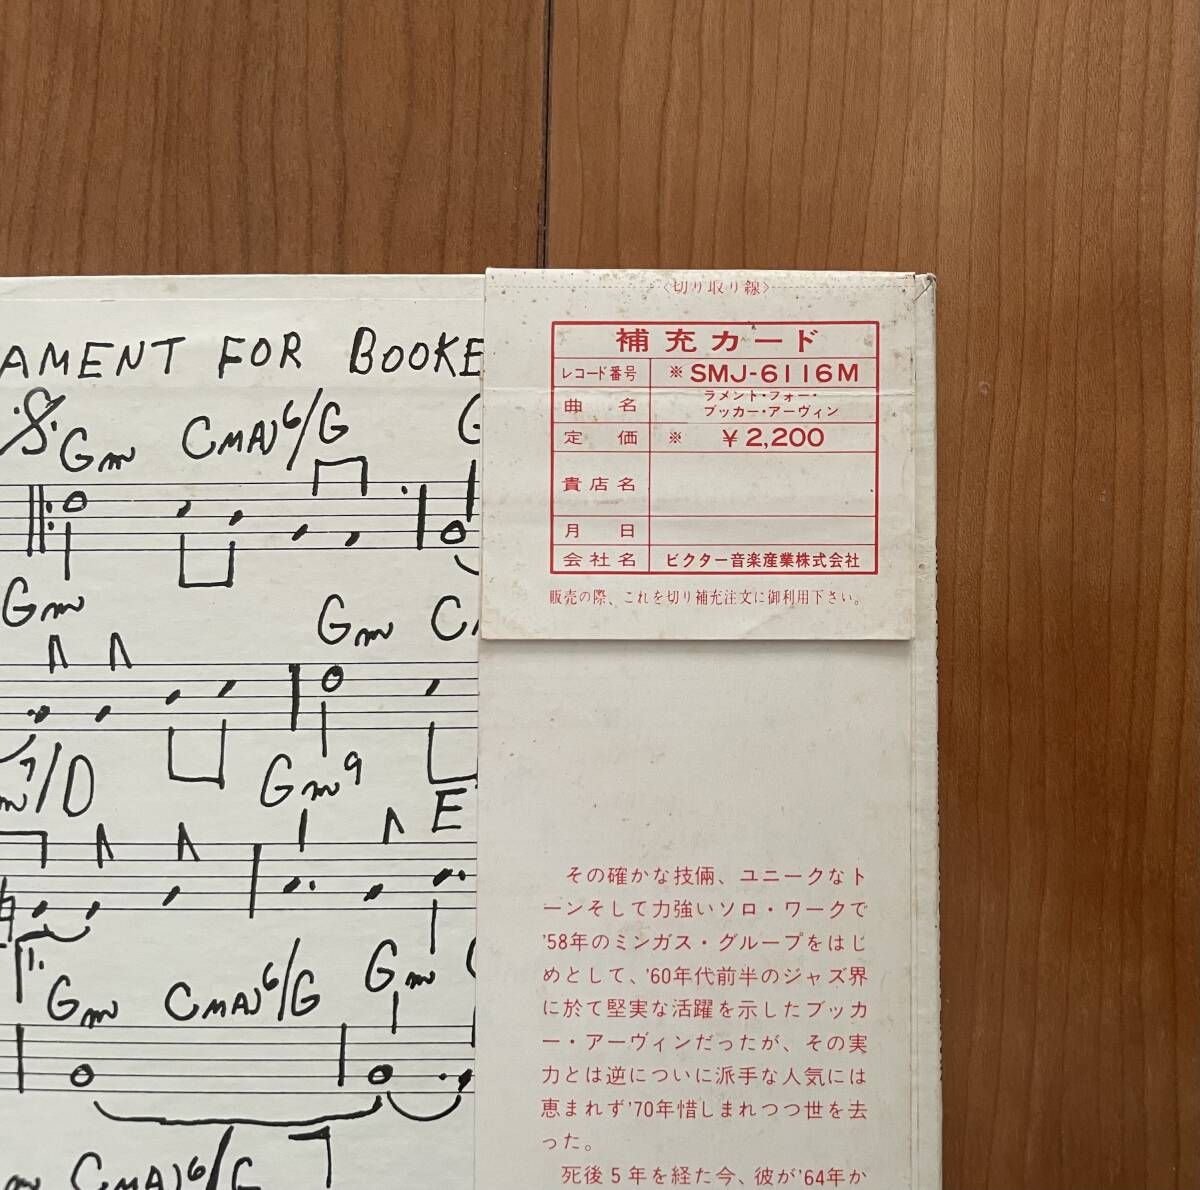 AMENT FOR BOOKE
Gm CMAJ6/G G
Gm Gm C
m7/D Gm9 E
1.
Gm CMAJ6/G Gm
CMAJ6/G
〈切り取り線〉
補充カード
レコード番号 ※SMJ-6116M
曲名 ラメント・フォー・
ブッカー・アーヴィン
定価 ※ ¥2,200
貴店名
月日
会社名 ビクター音楽産業株式会社
販売の際、これを切り補充注文に御利用下さい。
その確かな技倆、ユニークなト
ーンそして力強いソロ・ワークで
'58年のミンガス・グループをはじ
めとして、'60年代前半のジャズ界
に於て堅実な活躍を示したブッカ
ー・アーヴィンだったが、その実
力とは逆についに派手な人気には
恵まれず'70年惜しまれつつ世を去
った。
死後5年を経た今、彼が'64年か